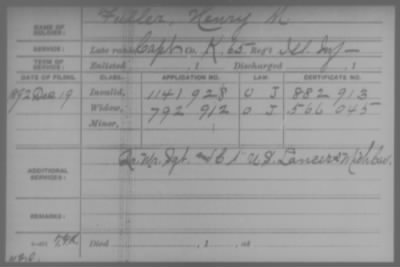 NAME OF SOLDIER: Fuller, Henry M
SERVICE: Late rank Capt Co. K, 65 Reg't Ill. Inf
TERM OF SERVICE: Enlisted , 1 Discharged , 1
DATE OF FILING. CLASS. APPLICATION NO. LAW. CERTIFICATE NO.
1892 Dec 19 Invalid, 1141 928 J 882 913
Widow, 792 912 J 566 045
Minor,
ADDITIONAL SERVICES: Qr. Mr. Sgt. 1 U.S. Lancers Mich Cav.
REMARKS:
Died , 1 , at